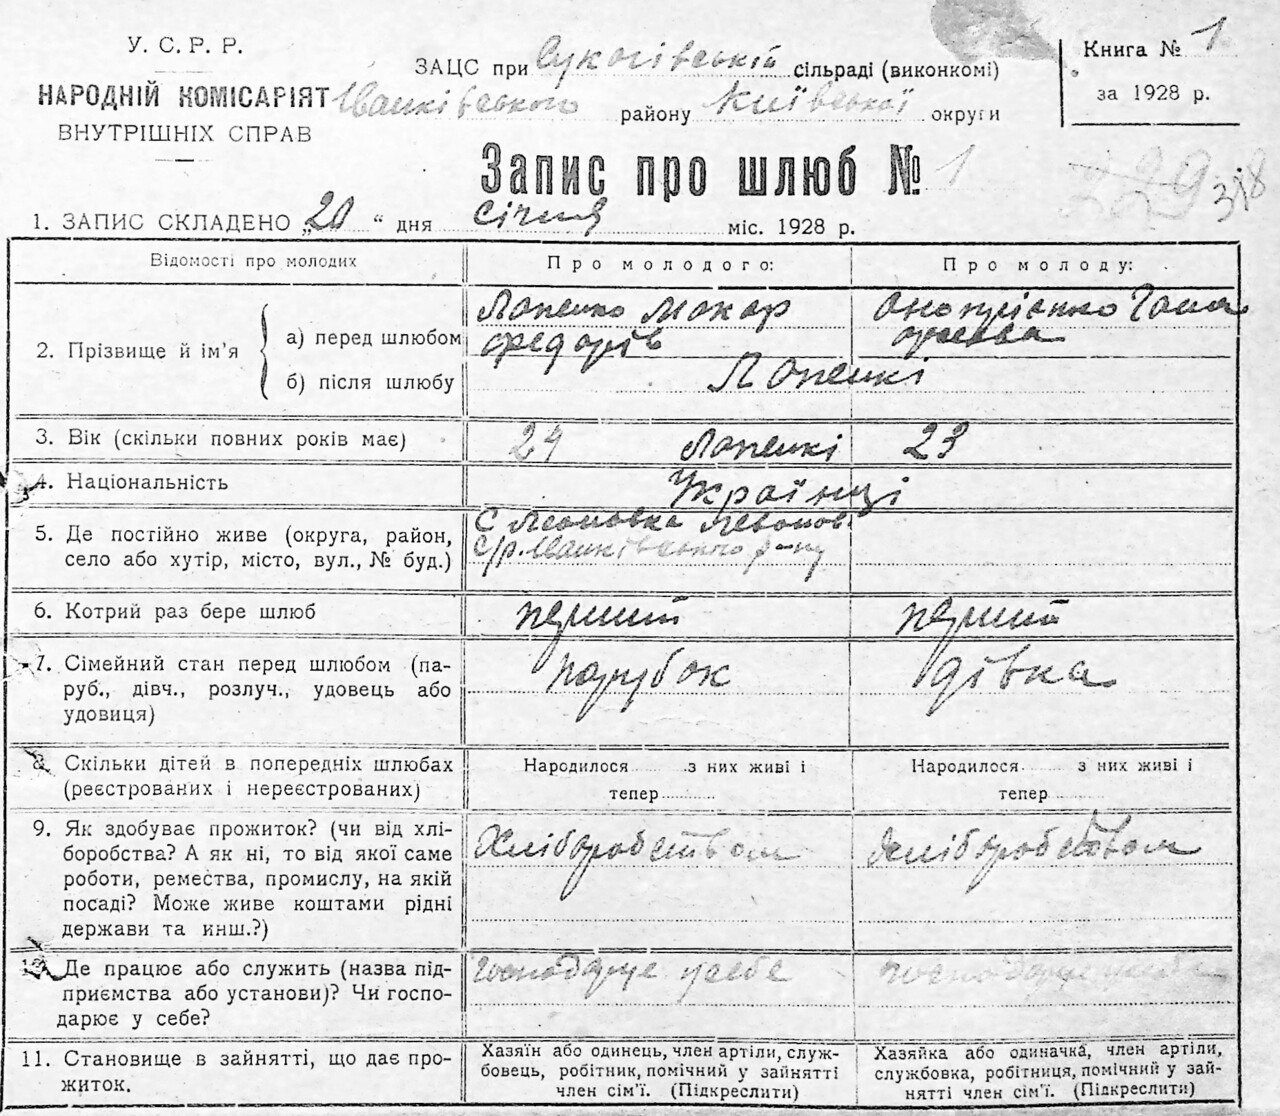 У. С. Р. Р.
НАРОДНІЙ КОМІСАРІЯТ
ВНУТРІШНІХ СПРАВ
ЗАЦС при сільраді (виконкомі)
Іванківського району Київської округи
Книга № 1
за 1928 р.
Запис про шлюб № 1
1. ЗАПИС СКЛАДЕНО „20“ дня січня міс. 1928 р.
Відомості про молодих
Про молодого:
Про молоду:
2. Прізвище й ім’я
а) перед шлюбом
б) після шлюбу
Лапенко Макар
Федорів
Онопрієнко Гана
Лапенкі
3. Вік (скільки повних років має)
24 Лапенкі 23
4. Національність
Українці
5. Де постійно живе (округа, район,
село або хутір, місто, вул., № буд.)
с/р. Іванківського р-ну
6. Котрий раз бере шлюб
перший
перший
7. Сімейний стан перед шлюбом (па-
руб., дівч., розлуч., удовець або
удовиця)
парубок
дівка
8. Скільки дітей в попередніх шлюбах
(реєстрованих і нереєстрованих)
Народилося з них живі і
тепер
Народилося з них живі і
тепер
9. Як здобуває прожиток? (чи від хлі-
боробства? А як ні, то від якої саме
роботи, ремества, промислу, на якій
посаді? Може живе коштами рідні
держави та инш.?)
Хліборобством
хліборобством
10. Де працює або служить (назва під-
приємства або установи)? Чи госпо-
дарює у себе?
господарює у себе
господарює у себе
11. Становище в зайнятті, що дає про-
житок.
Хазяїн або одинець, член артіли, служ-
бовець, робітник, помічний у зайнятті
член сім’ї. (Підкреслити)
Хазяйка або одиначка, член артіли,
службовка, робітниця, помічний у зай-
нятті член сім’ї. (Підкреслити)